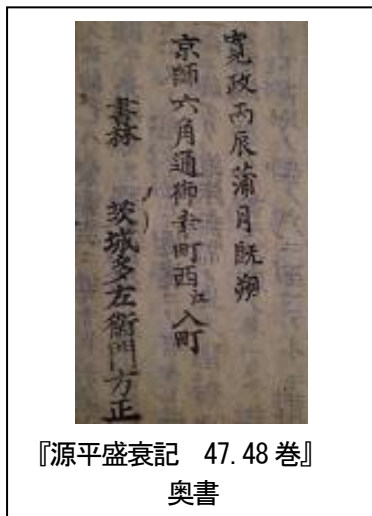 寛政丙辰蒲月既朔
京師六角通御幸町西江入町
書林 茨城多左衛門方正
『源平盛衰記 47.48巻』
奥書